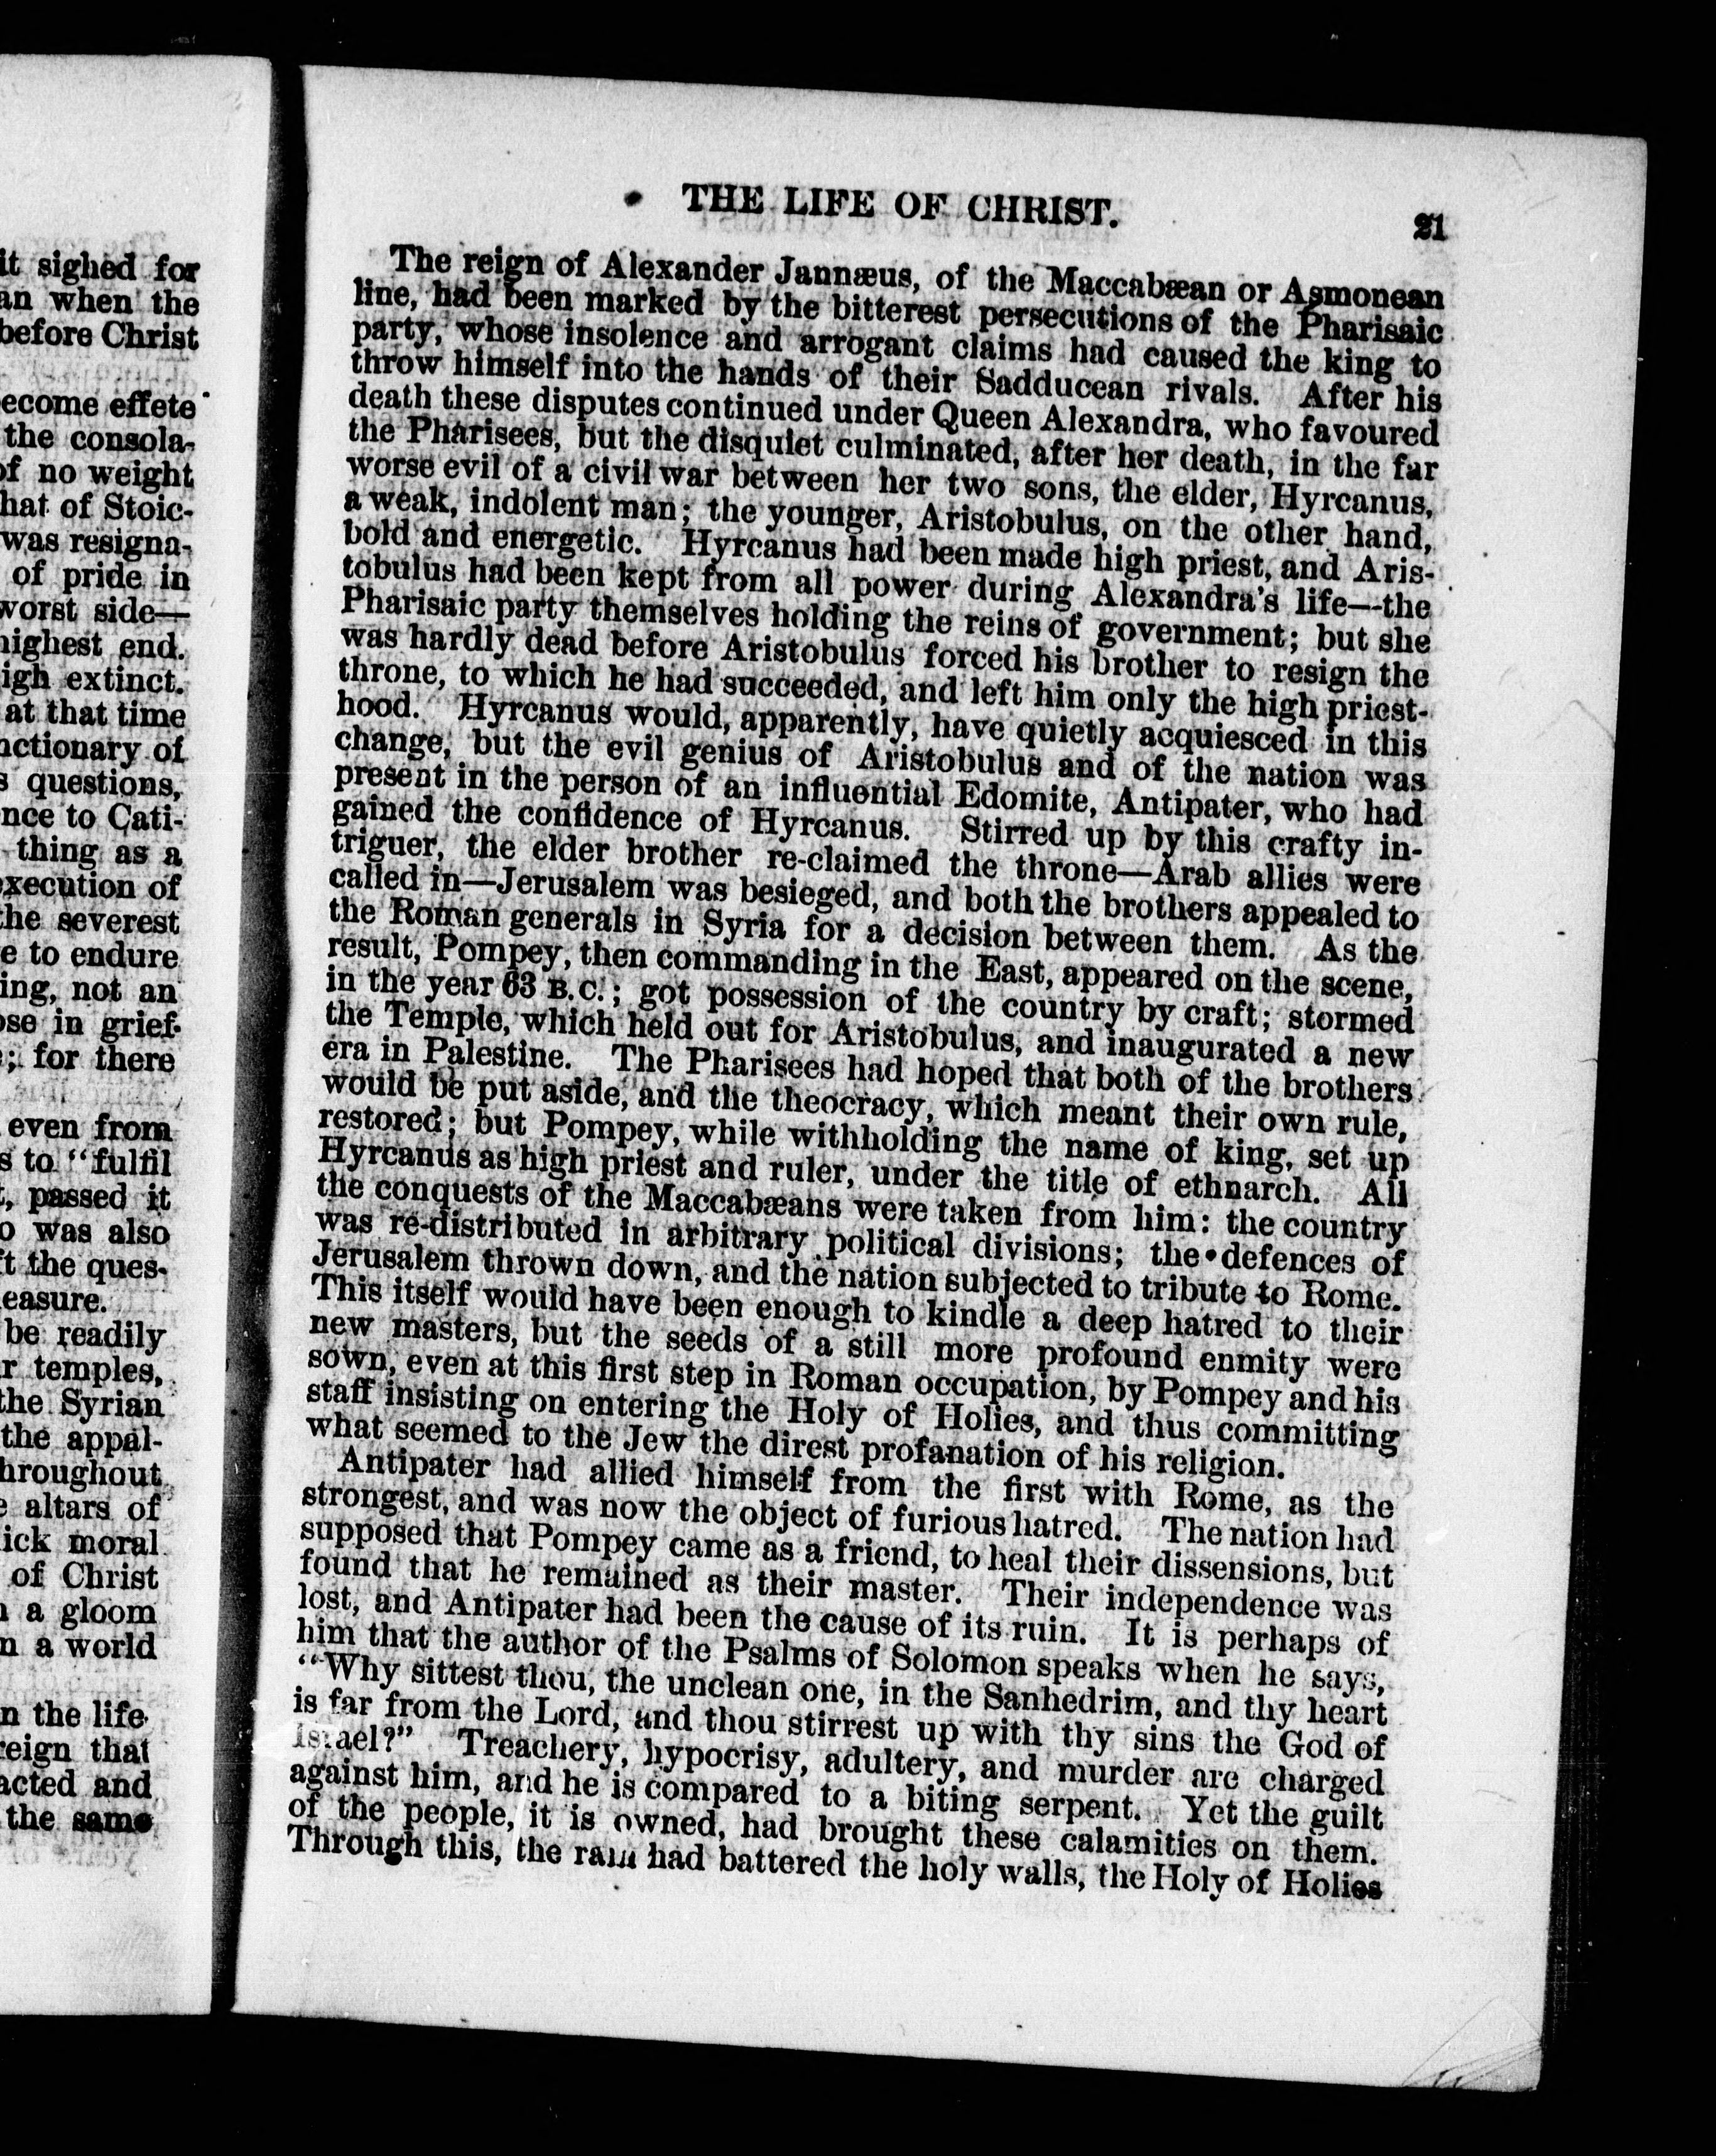 it sighed for
an when the
before Christ
ecome effete
the consola-
of no weight
hat of Stoic-
was resigna-
of pride in
worst side—
highest end.
igh extinct.
at that time
nctionary of
s questions,
nce to Cati-
thing as a
execution of
the severest
e to endure
ing, not an
ose in grief
; for there
even from
s to "fulfil
t, passed it
o was also
ft the ques-
easure.
be readily
r temples,
the Syrian
the appal-
hroughout
e altars of
ick moral
of Christ
a gloom
n a world
n the life
reign that
acted and
the same
THE LIFE OF CHRIST.
21
The reign of Alexander Jannæus, of the Maccabæan or Asmonean
line, had been marked by the bitterest persecutions of the Pharisaic
party, whose insolence and arrogant claims had caused the king to
throw himself into the hands of their Sadducean rivals. After his
death these disputes continued under Queen Alexandra, who favoured
the Pharisees, but the disquiet culminated, after her death, in the far
worse evil of a civil war between her two sons, the elder, Hyrcanus,
a weak, indolent man; the younger, Aristobulus, on the other hand,
bold and energetic. Hyrcanus had been made high priest, and Aris-
tobulus had been kept from all power during Alexandra's life—the
Pharisaic party themselves holding the reins of government; but she
was hardly dead before Aristobulus forced his brother to resign the
throne, to which he had succeeded, and left him only the high priest-
hood. Hyrcanus would, apparently, have quietly acquiesced in this
change, but the evil genius of Aristobulus and of the nation was
present in the person of an influential Edomite, Antipater, who had
gained the confidence of Hyrcanus. Stirred up by this crafty in-
triguer, the elder brother re-claimed the throne—Arab allies were
called in—Jerusalem was besieged, and both the brothers appealed to
the Roman generals in Syria for a decision between them. As the
result, Pompey, then commanding in the East, appeared on the scene,
in the year 63 B.C.; got possession of the country by craft; stormed
the Temple, which held out for Aristobulus, and inaugurated a new
era in Palestine. The Pharisees had hoped that both of the brothers
would be put aside, and the theocracy, which meant their own rule,
restored; but Pompey, while withholding the name of king, set up
Hyrcanus as high priest and ruler, under the title of ethnarch. All
the conquests of the Maccabæans were taken from him: the country
was re-distributed in arbitrary political divisions; the defences of
Jerusalem thrown down, and the nation subjected to tribute to Rome.
This itself would have been enough to kindle a deep hatred to their
new masters, but the seeds of a still more profound enmity were
sown, even at this first step in Roman occupation, by Pompey and his
staff insisting on entering the Holy of Holies, and thus committing
what seemed to the Jew the direst profanation of his religion.
Antipater had allied himself from the first with Rome, as the
strongest, and was now the object of furious hatred. The nation had
supposed that Pompey came as a friend, to heal their dissensions, but
found that he remained as their master. Their independence was
lost, and Antipater had been the cause of its ruin. It is perhaps of
him that the author of the Psalms of Solomon speaks when he says,
"Why sittest thou, the unclean one, in the Sanhedrim, and thy heart
is far from the Lord, and thou stirrest up with thy sins the God of
Israel?" Treachery, hypocrisy, adultery, and murder are charged
against him, and he is compared to a biting serpent. Yet the guilt
of the people, it is owned, had brought these calamities on them.
Through this, the ram had battered the holy walls, the Holy of Holies